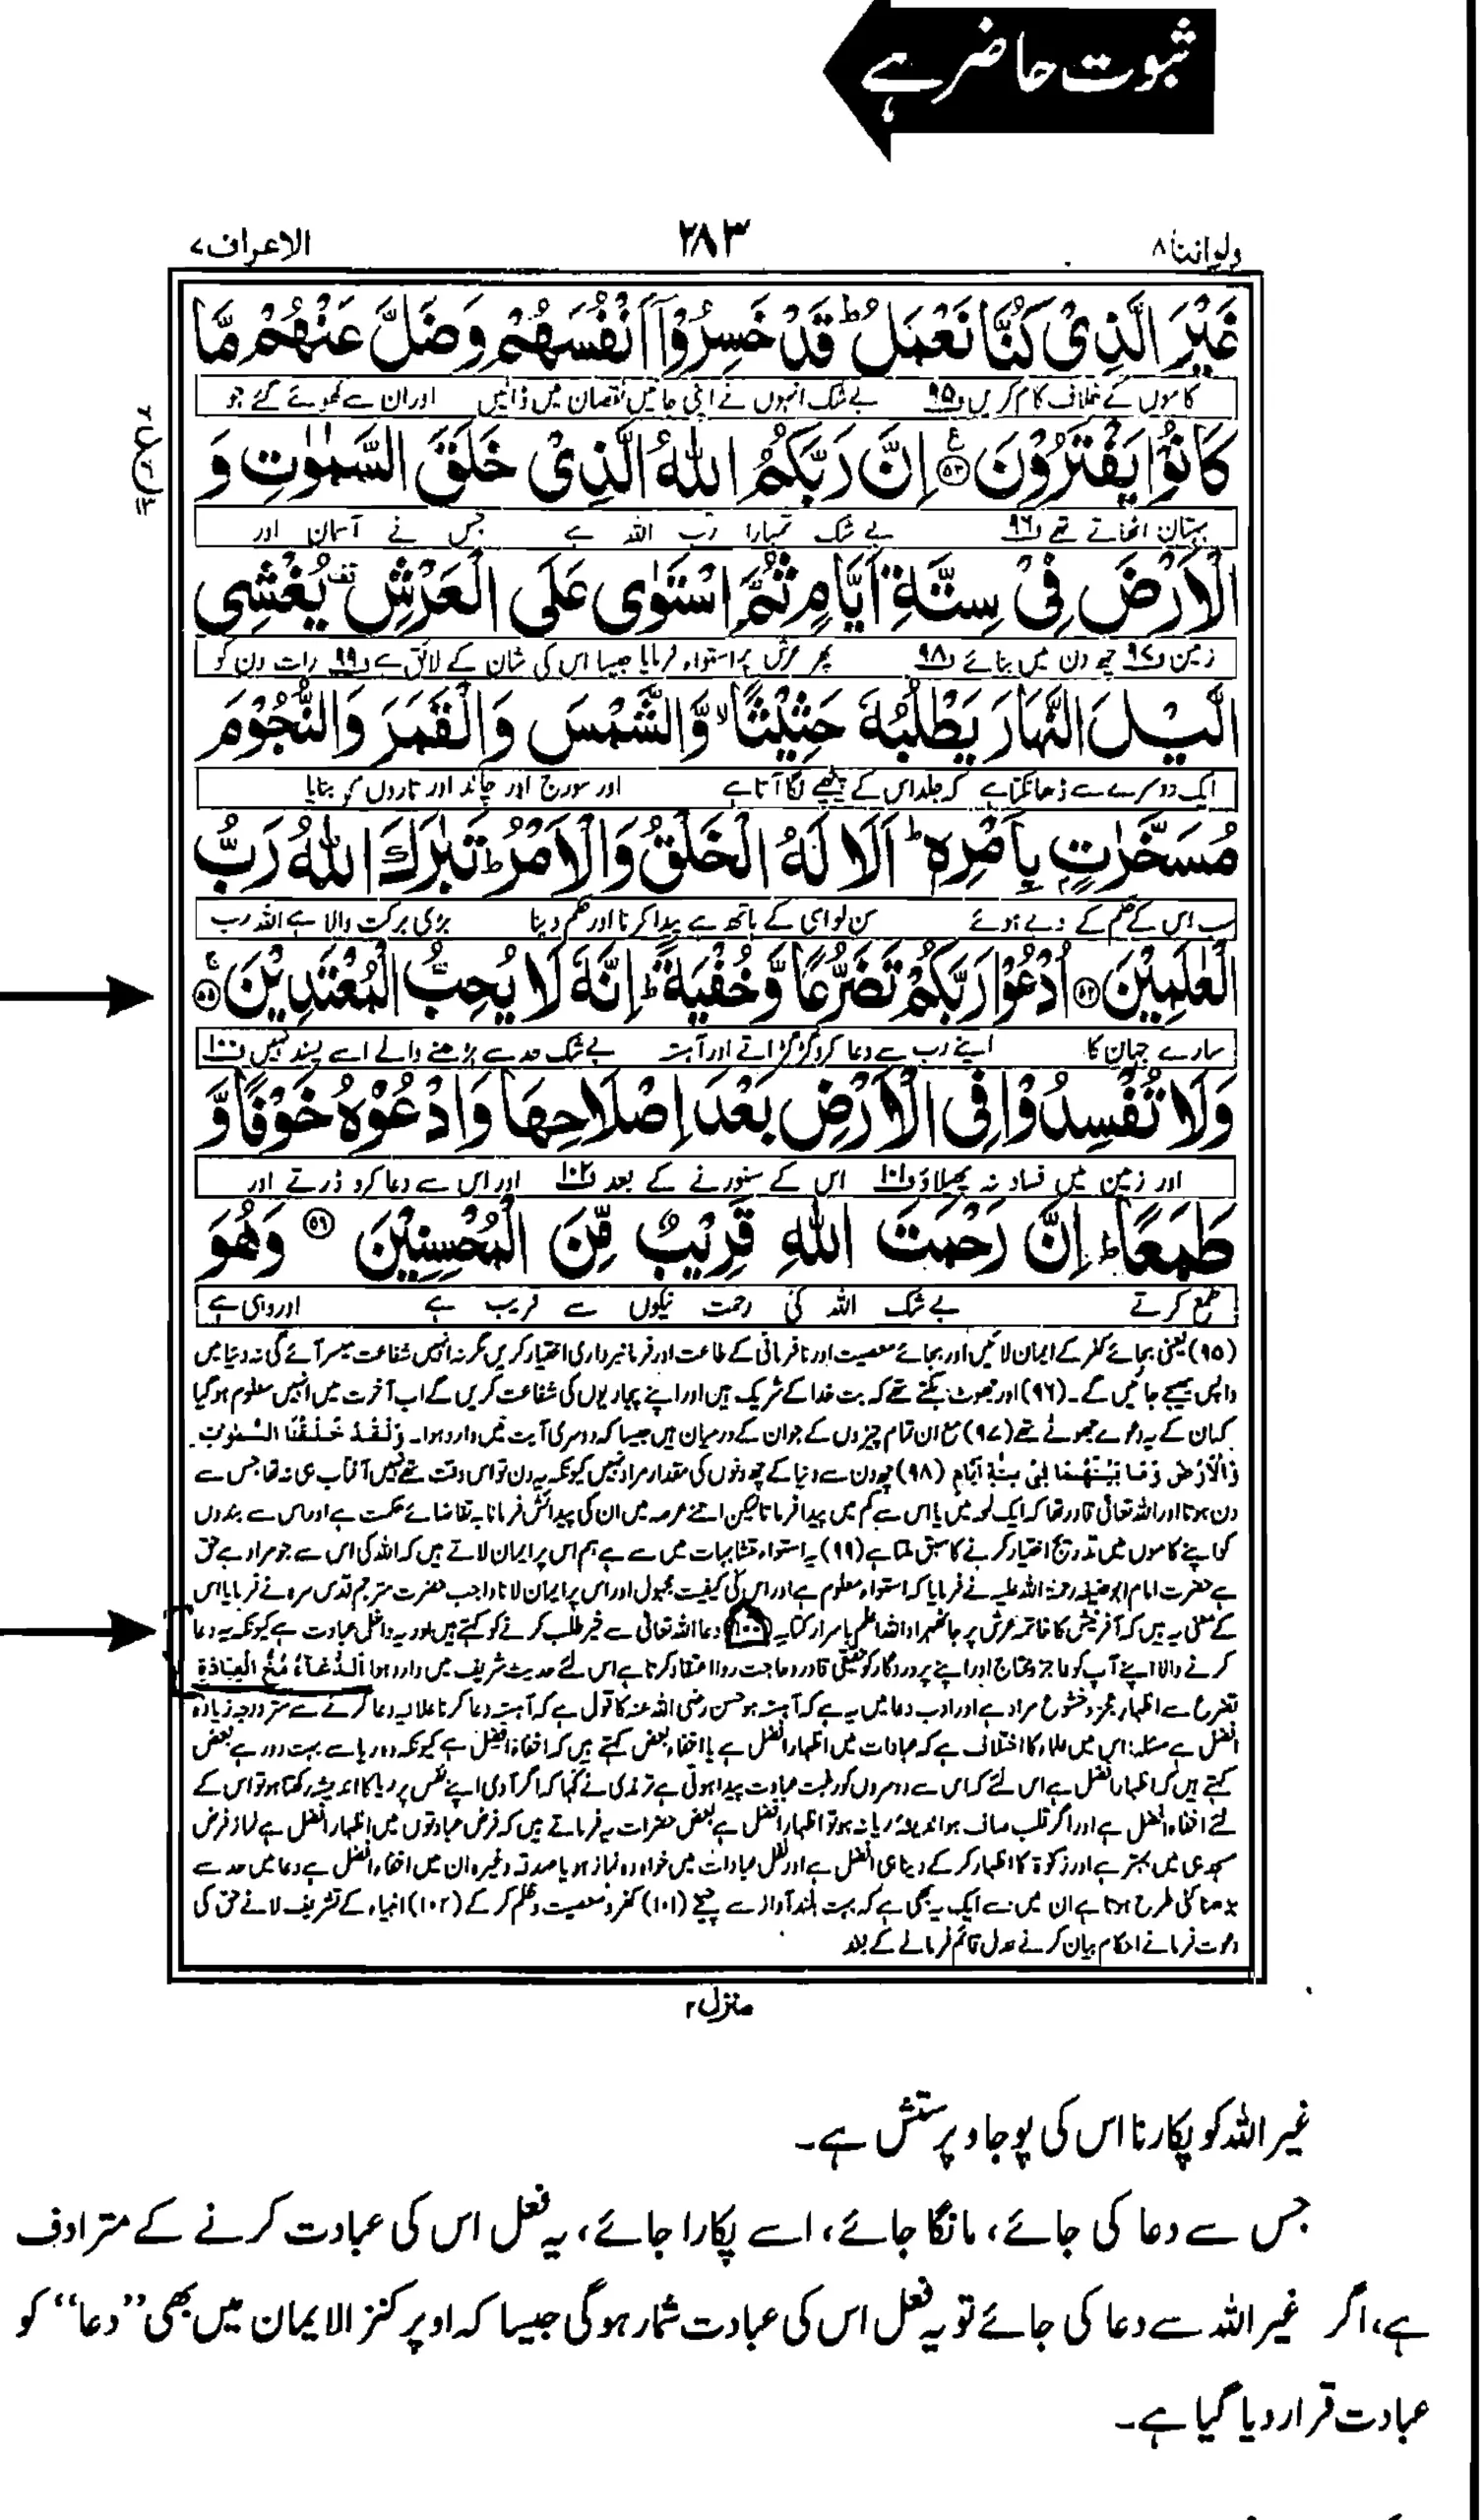 ثبوت حاضر ہے
ولواننا ۸
۲۸۳
الاعراف ۷
غَيْرَ الَّذِىْ كُنَّا نَعْمَلُ ؕ قَدْ خَسِرُوْۤا اَنْفُسَهُمْ وَضَلَّ عَنْهُمْ مَّا
کاموں کے خلاف کام کریں ف۹۵ بے شک انہوں نے اپنی جانیں نقصان میں ڈالیں اور ان سے کھوئے گئے جو
كَانُوْا يَفْتَرُوْنَ ۵۳ اِنَّ رَبَّكُمُ اللّٰهُ الَّذِىْ خَلَقَ السَّمٰوٰتِ وَ
بہتان اٹھاتے تھے ف۹۶ بے شک تمہارا رب اللہ ہے جس نے آسمان اور
الْاَرْضَ فِىْ سِتَّةِ اَيَّامٍ ثُمَّ اسْتَوٰى عَلَى الْعَرْشِ يُغْشِى
زمین ف۹۷ چھ دن میں بنائے ف۹۸ پھر عرش پر استواء فرمایا جیسا اس کی شان کے لائق ہے ف۹۹ رات دن کو
الَّيْلَ النَّهَارَ يَطْلُبُهٗ حَثِيْثًا ۙ وَّالشَّمْسَ وَالْقَمَرَ وَالنُّجُوْمَ
ایک دوسرے سے ڈھانکتا ہے کہ جلد اس کے پیچھے لگا آتا ہے اور سورج اور چاند اور تاروں کو بنایا
مُسَخَّرٰتٍۭ بِاَمْرِهٖ ؕ اَلَا لَهُ الْخَلْقُ وَالْاَمْرُ ؕ تَبٰرَكَ اللّٰهُ رَبُّ
سب اس کے حکم کے دبے ہوئے سن لو اسی کے ہاتھ ہے پیدا کرنا اور حکم دینا بڑی برکت والا ہے اللہ رب
الْعٰلَمِيْنَ ۵۴ اُدْعُوْا رَبَّكُمْ تَضَرُّعًا وَّخُفْيَةً ؕ اِنَّهٗ لَا يُحِبُّ الْمُعْتَدِيْنَ ۵۵
سارے جہان کا اپنے رب سے دعا کرو گڑگڑاتے اور آہستہ بے شک حد سے بڑھنے والے اسے پسند نہیں ف۱۰۰
وَلَا تُفْسِدُوْا فِى الْاَرْضِ بَعْدَ اِصْلَاحِهَا وَادْعُوْهُ خَوْفًا وَّ
اور زمین میں فساد نہ پھیلاؤ ف۱۰۱ اس کے سنورنے کے بعد ف۱۰۲ اور اس سے دعا کرو ڈرتے اور
طَمَعًا ؕ اِنَّ رَحْمَتَ اللّٰهِ قَرِيْبٌ مِّنَ الْمُحْسِنِيْنَ ۵۶ وَهُوَ
طمع کرتے بے شک اللہ کی رحمت نیکوں سے قریب ہے اور وہی ہے
(۹۵) یعنی بجائے کفر کے ایمان لائیں اور بجائے معصیت اور نافرمانی کے طاعت اور فرمانبرداری اختیار کریں مگر نہ انہیں شفاعت میسر آئے گی نہ دنیا میں
واپس بھیجے جائیں گے۔ (۹۶) اور جھوٹ بکتے تھے کہ بت خدا کے شریک ہیں اور اپنے پجاریوں کی شفاعت کریں گے اب آخرت میں انہیں معلوم ہو گیا
کہ ان کے یہ دعوے جھوٹے تھے (۹۷) مع ان تمام چیزوں کے جو ان کے درمیان ہیں جیسا کہ دوسری آیت میں وارد ہوا۔ وَلَقَدْ خَلَقْنَا السَّمٰوٰتِ
وَالْاَرْضَ وَمَا بَيْنَهُمَا فِىْ سِتَّةِ اَيَّامٍ (۹۸) چھ دن سے دنیا کے چھ دنوں کی مقدار مراد نہیں کیونکہ یہ دن تو اس وقت تھے نہیں آفتاب ہی نہ تھا جس سے
دن ہوتا اور اللہ تعالیٰ قادر تھا کہ ایک لمحہ میں یا اس سے کم میں پیدا فرماتا لیکن اتنے عرصہ میں ان کی پیدائش فرمانا بہ تقاضائے حکمت ہے اور اس سے بندوں
کو اپنے کاموں میں تدریج اختیار کرنے کا سبق ملتا ہے (۹۹) یہ استواء متشابہات میں سے ہے ہم اس پر ایمان لاتے ہیں کہ اللہ کی اس سے جو مراد ہے حق
ہے حضرت امام ابو حنیفہ رحمۃ اللہ علیہ نے فرمایا کہ استواء معلوم ہے اور اس کی کیفیت مجہول اور اس پر ایمان لانا واجب حضرت مترجم قدس سرہ نے فرمایا اس
کے معنی یہ ہیں کہ آفرینش کا خاتمہ عرش پر جا ٹھہرا واللہ اعلم باسرار کتابہ (۱۰۰) دعا اللہ تعالیٰ سے خیر طلب کرنے کو کہتے ہیں اور یہ داخل عبادت ہے کیونکہ یہ دعا
کرنے والا اپنے آپ کو عاجز و محتاج اور اپنے پروردگار کو حقیقی قادر و حاجت روا اعتقاد کرتا ہے اس لئے حدیث شریف میں وارد ہوا اَلدُّعَآءُ مُخُّ الْعِبَادَةِ
تضرع سے اظہار عجز و خشوع مراد ہے اور ادب دعا میں یہ ہے کہ آہستہ ہو حسن رضی اللہ عنہ کا قول ہے کہ آہستہ دعا کرنا علانیہ دعا کرنے سے ستر درجہ زیادہ
افضل ہے مسئلہ: اس میں علماء کا اختلاف ہے کہ عبادات میں اظہار افضل ہے یا اخفاء بعض کہتے ہیں کہ اخفاء افضل ہے کیونکہ وہ ریا سے بہت دور ہے بعض
کہتے ہیں کہ اظہار افضل ہے اس لئے کہ اس سے دوسروں کو رغبت عبادت پیدا ہوتی ہے ترمذی نے کہا کہ اگر آدمی اپنے نفس پر ریا کا اندیشہ رکھتا ہو تو اس کے
لئے اخفاء افضل ہے اور اگر قلب صاف ہو اندیشہ ریا نہ ہو تو اظہار افضل ہے بعض حضرات یہ فرماتے ہیں کہ فرض عبادتوں میں اظہار افضل ہے نماز فرض
مسجد ہی میں بہتر ہے اور زکوٰۃ کا اظہار کر کے دینا ہی افضل ہے اور نفل عبادات میں خواہ وہ نماز ہو یا صدقہ وغیرہ ان میں اخفاء افضل ہے دعا میں حد سے
بڑھنا کئی طرح ہوتا ہے ان میں سے ایک یہ بھی ہے کہ بہت بلند آواز سے چیخے (۱۰۱) کفر و معصیت و ظلم کر کے (۱۰۲) انبیاء کے تشریف لانے حق کی
دعوت فرمانے احکام بیان کرنے عدل قائم فرمانے کے بعد
منزل ۲
غیر اللہ کو پکارنا اس کی پوجا و پرستش ہے۔
جس سے دعا کی جائے، مانگا جائے، اسے پکارا جائے، یہ فعل اس کی عبادت کرنے کے مترادف
ہے، اگر غیر اللہ سے دعا کی جائے تو یہ فعل اس کی عبادت شمار ہوگی جیسا کہ اوپر کنز الایمان میں بھی ”دعا“ کو
عبادت قرار دیا گیا ہے۔